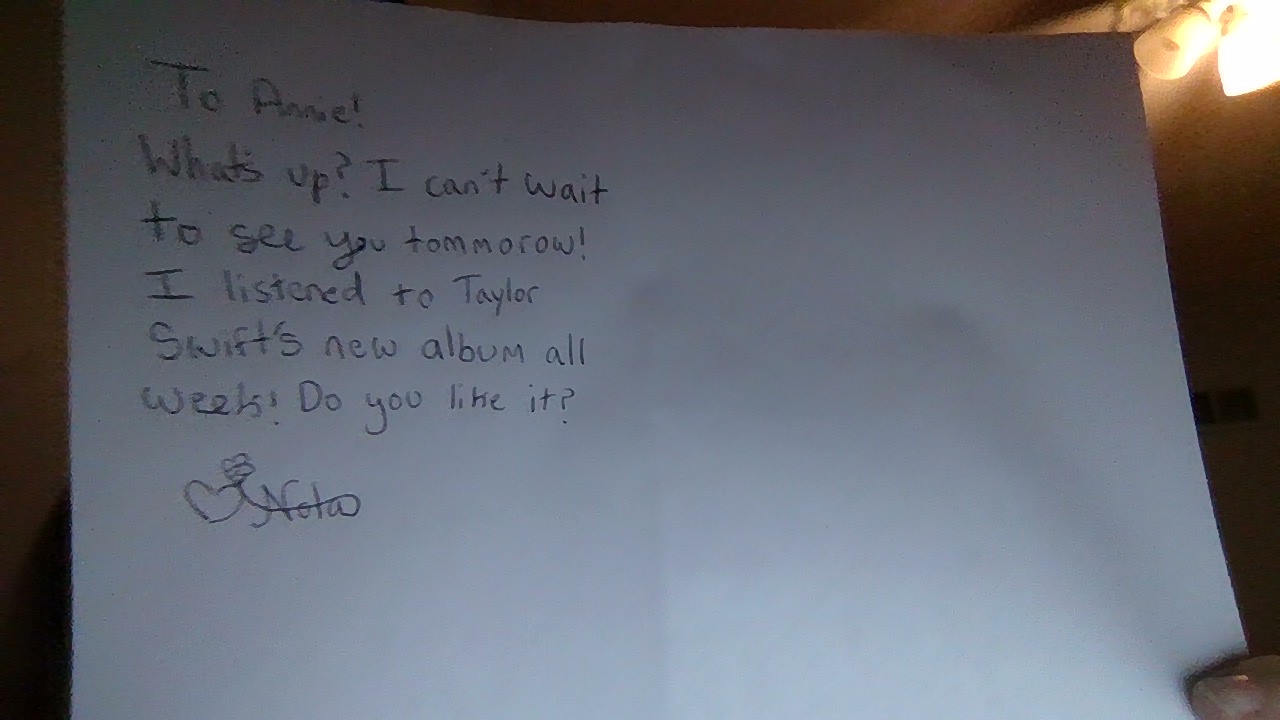 To Annie!
What's up? I can't wait
to see you tommorow!
I listened to Taylor
Swift's new album all
week! Do you like it?